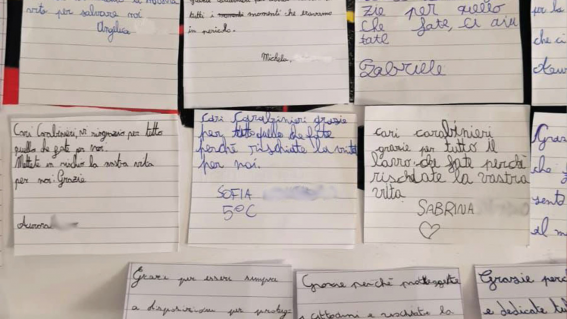 vita per salvare noi
Angelica
tutti i momenti che eravamo
in pericolo.
Michela
per quello
che fate, ci aiu
tate
Gabriele
per la
che ci
Cari Carabinieri, vi ringrazio per tutto
quello che fate per noi.
Mettete in rischio la vostra vita
per noi. Grazie
Aurora
Cari Carabinieri grazie
per tutto quello che fate
perché rischiate la vita
per noi.
SOFIA
5°C
cari carabinieri
grazie per tutto il
lavoro che fate perché
rischiate la vostra
vita
SABRINA
♡
Graz
che
sente
al m
Grazie per essere sempre
a disposizione per proteg-
Grazie perché proteggete
i cittadini e rischiate la
Grazie perc
e dedicate tu